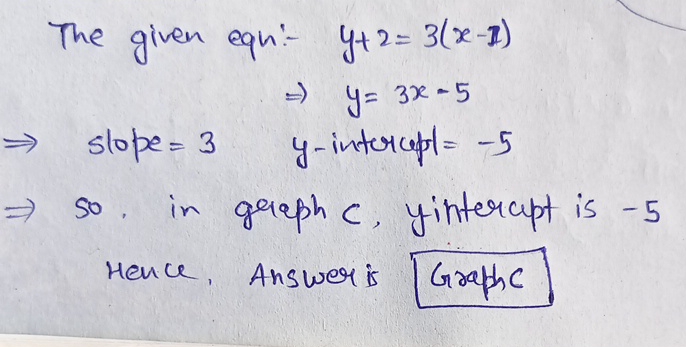 The given eqn:- y+2= 3(x-1)
=> y= 3x-5
=> slope= 3 y-intercept= -5
=> so, in graph C, y intercept is -5
Hence, Answer is Graph C